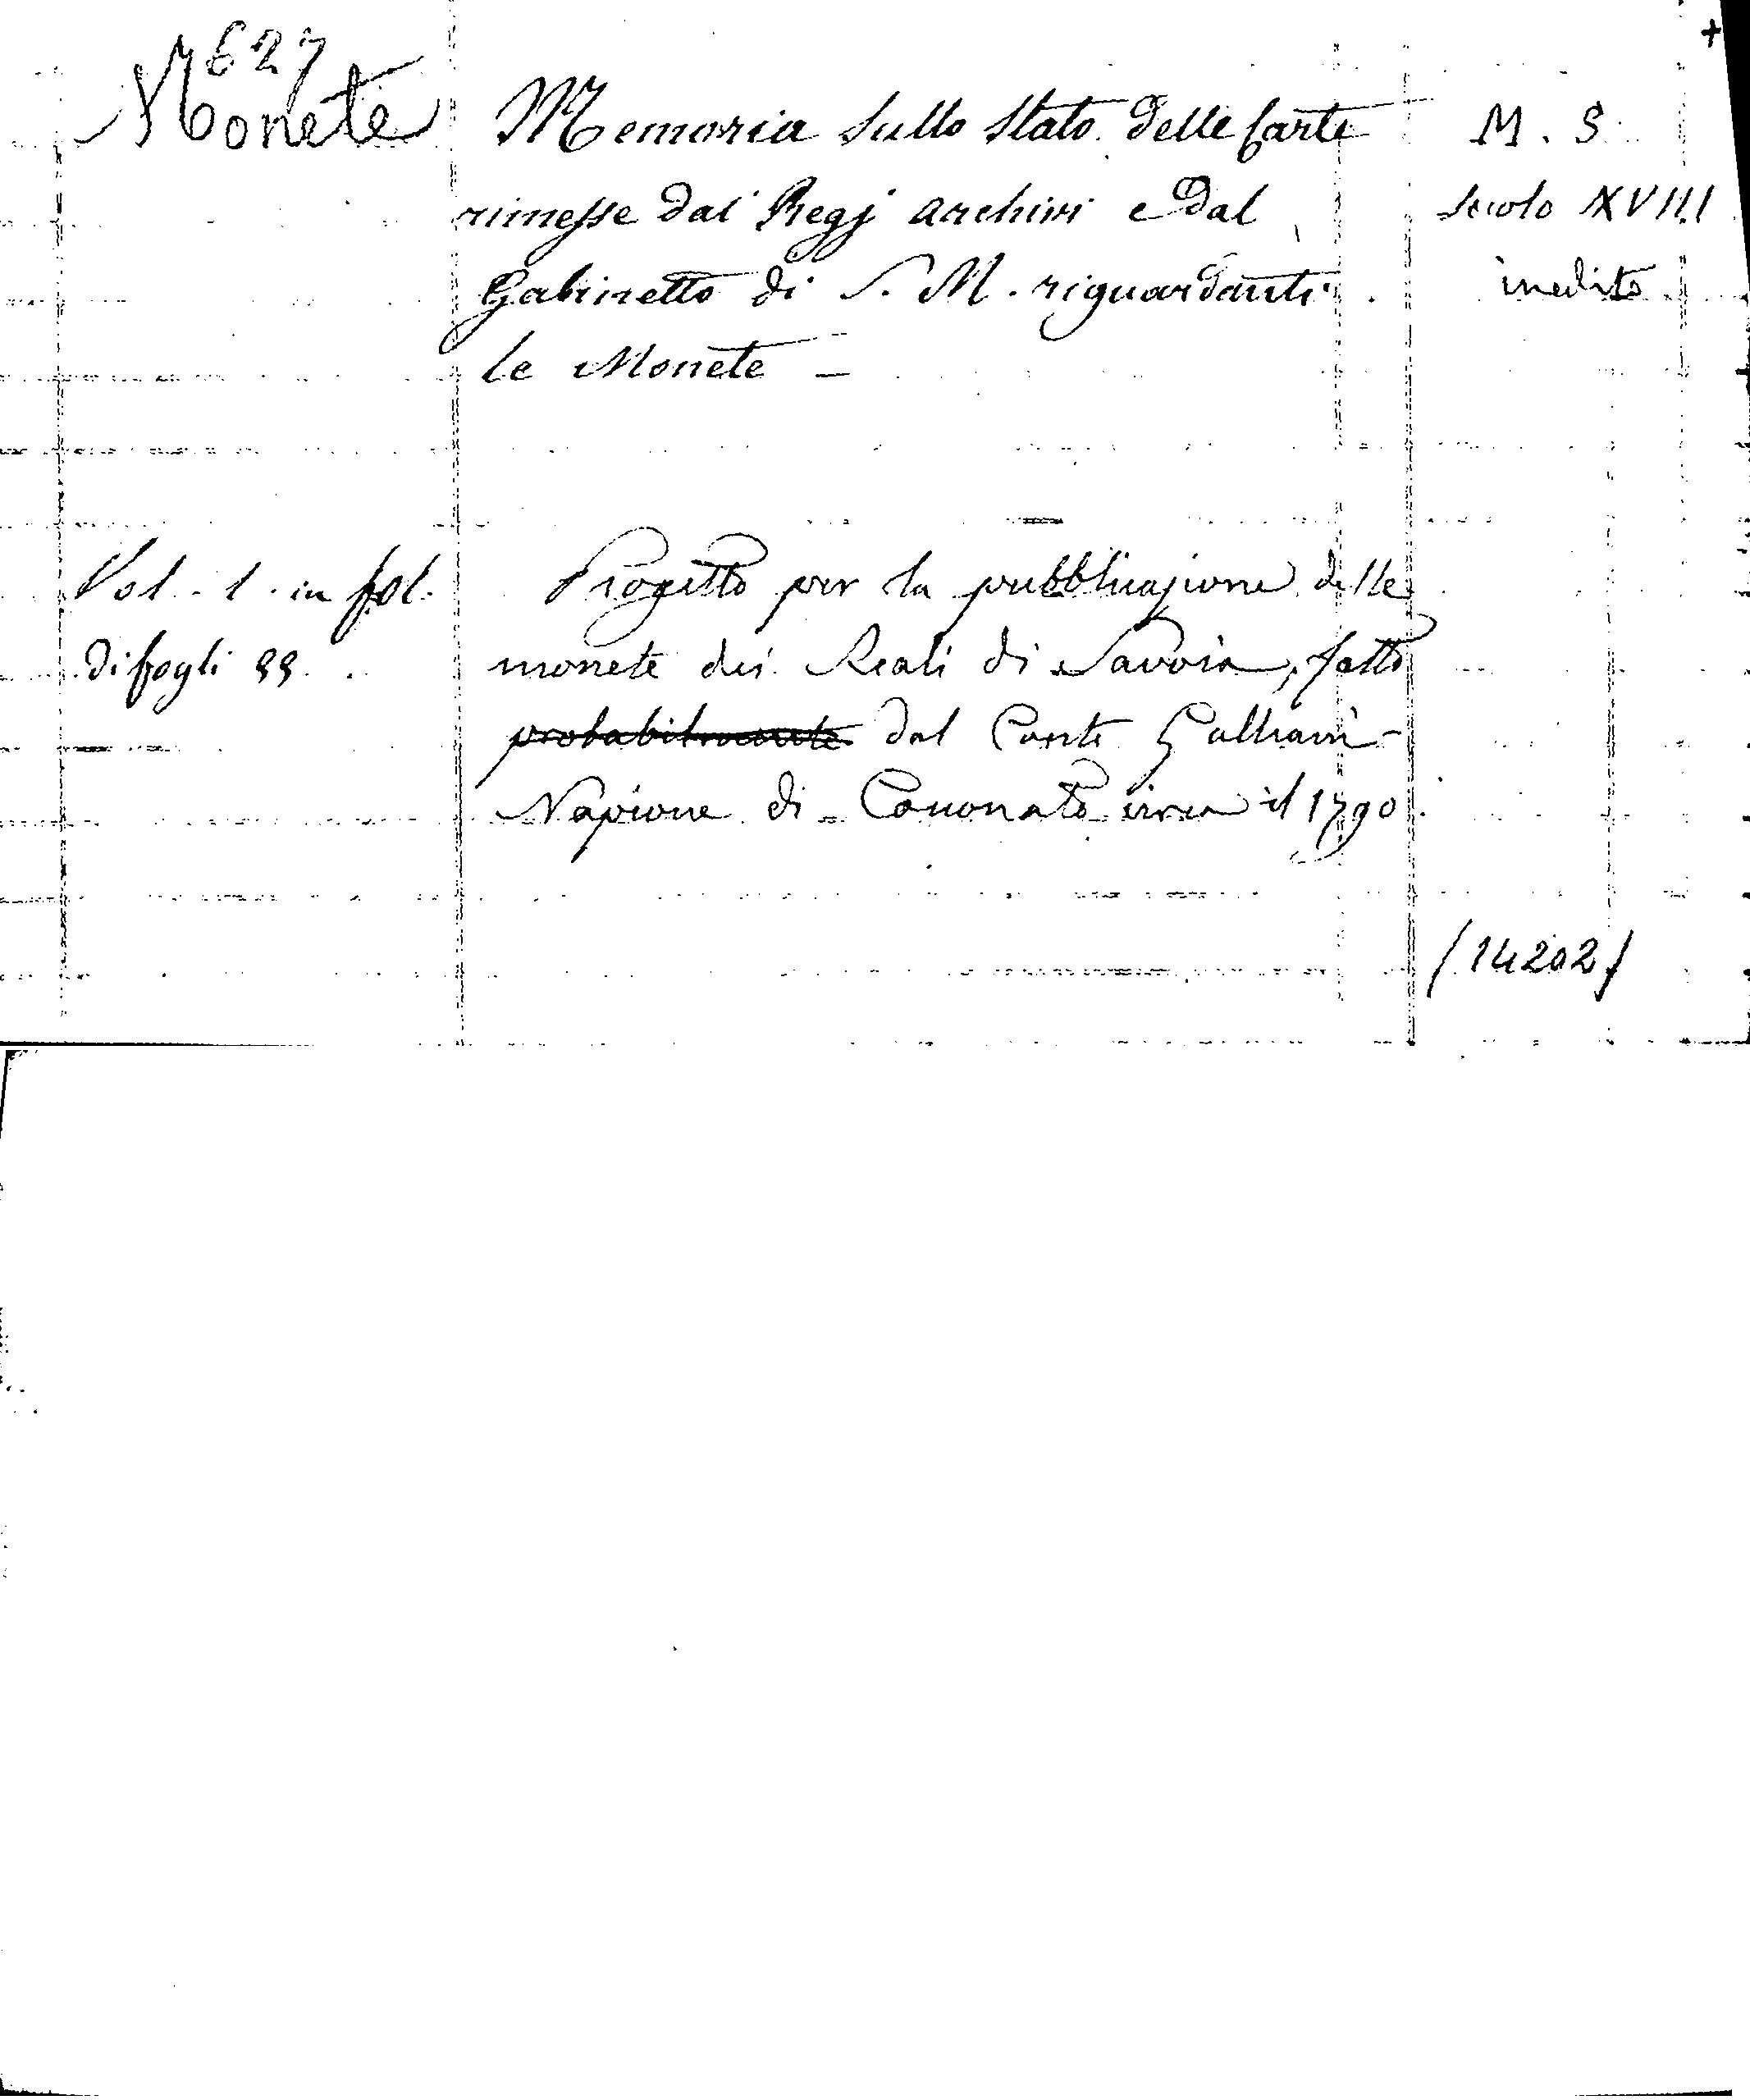 627
Monete
Memoria sullo stato delle Carte
rimesse dai Regj archivi e dal
Gabinetto di S. M. riguardanti
le Monete —
M. S.
secolo XVIII
inedito
Vol. 1. in fol.
di fogli
Progetto per la pubblicazione delle
monete dei Reali di Savoia, fatto
probabilmente dal Conte Galleani-
Napione di Coconato circa il 1790.
(14202)